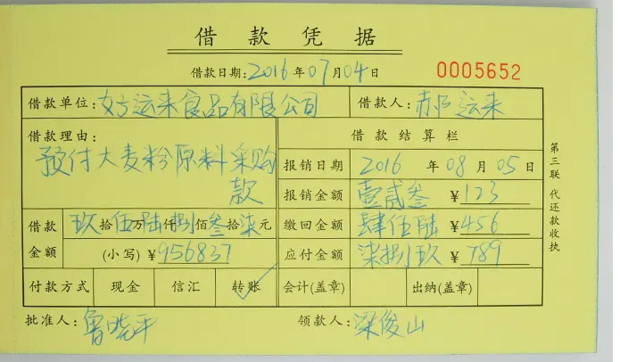 借款凭据
借款日期:2016年07月04日 0005652
借款单位:好运来食品有限公司 借款人:郝运来
借款理由:预付大麦粉原料采购款
借款结算栏
报销日期 2016年08月05日
报销金额 壹贰叁 ¥123
借款金额 玖拾伍万陆仟捌佰叁拾柒元
(小写)¥956837
缴回金额 肆伍陆 ¥456
应付金额 柒捌玖 ¥789
付款方式 现金 信汇 转账 ✓ 会计(盖章) 出纳(盖章)
批准人:鲁晓平 领款人:梁俊山
第三联 代还款收执